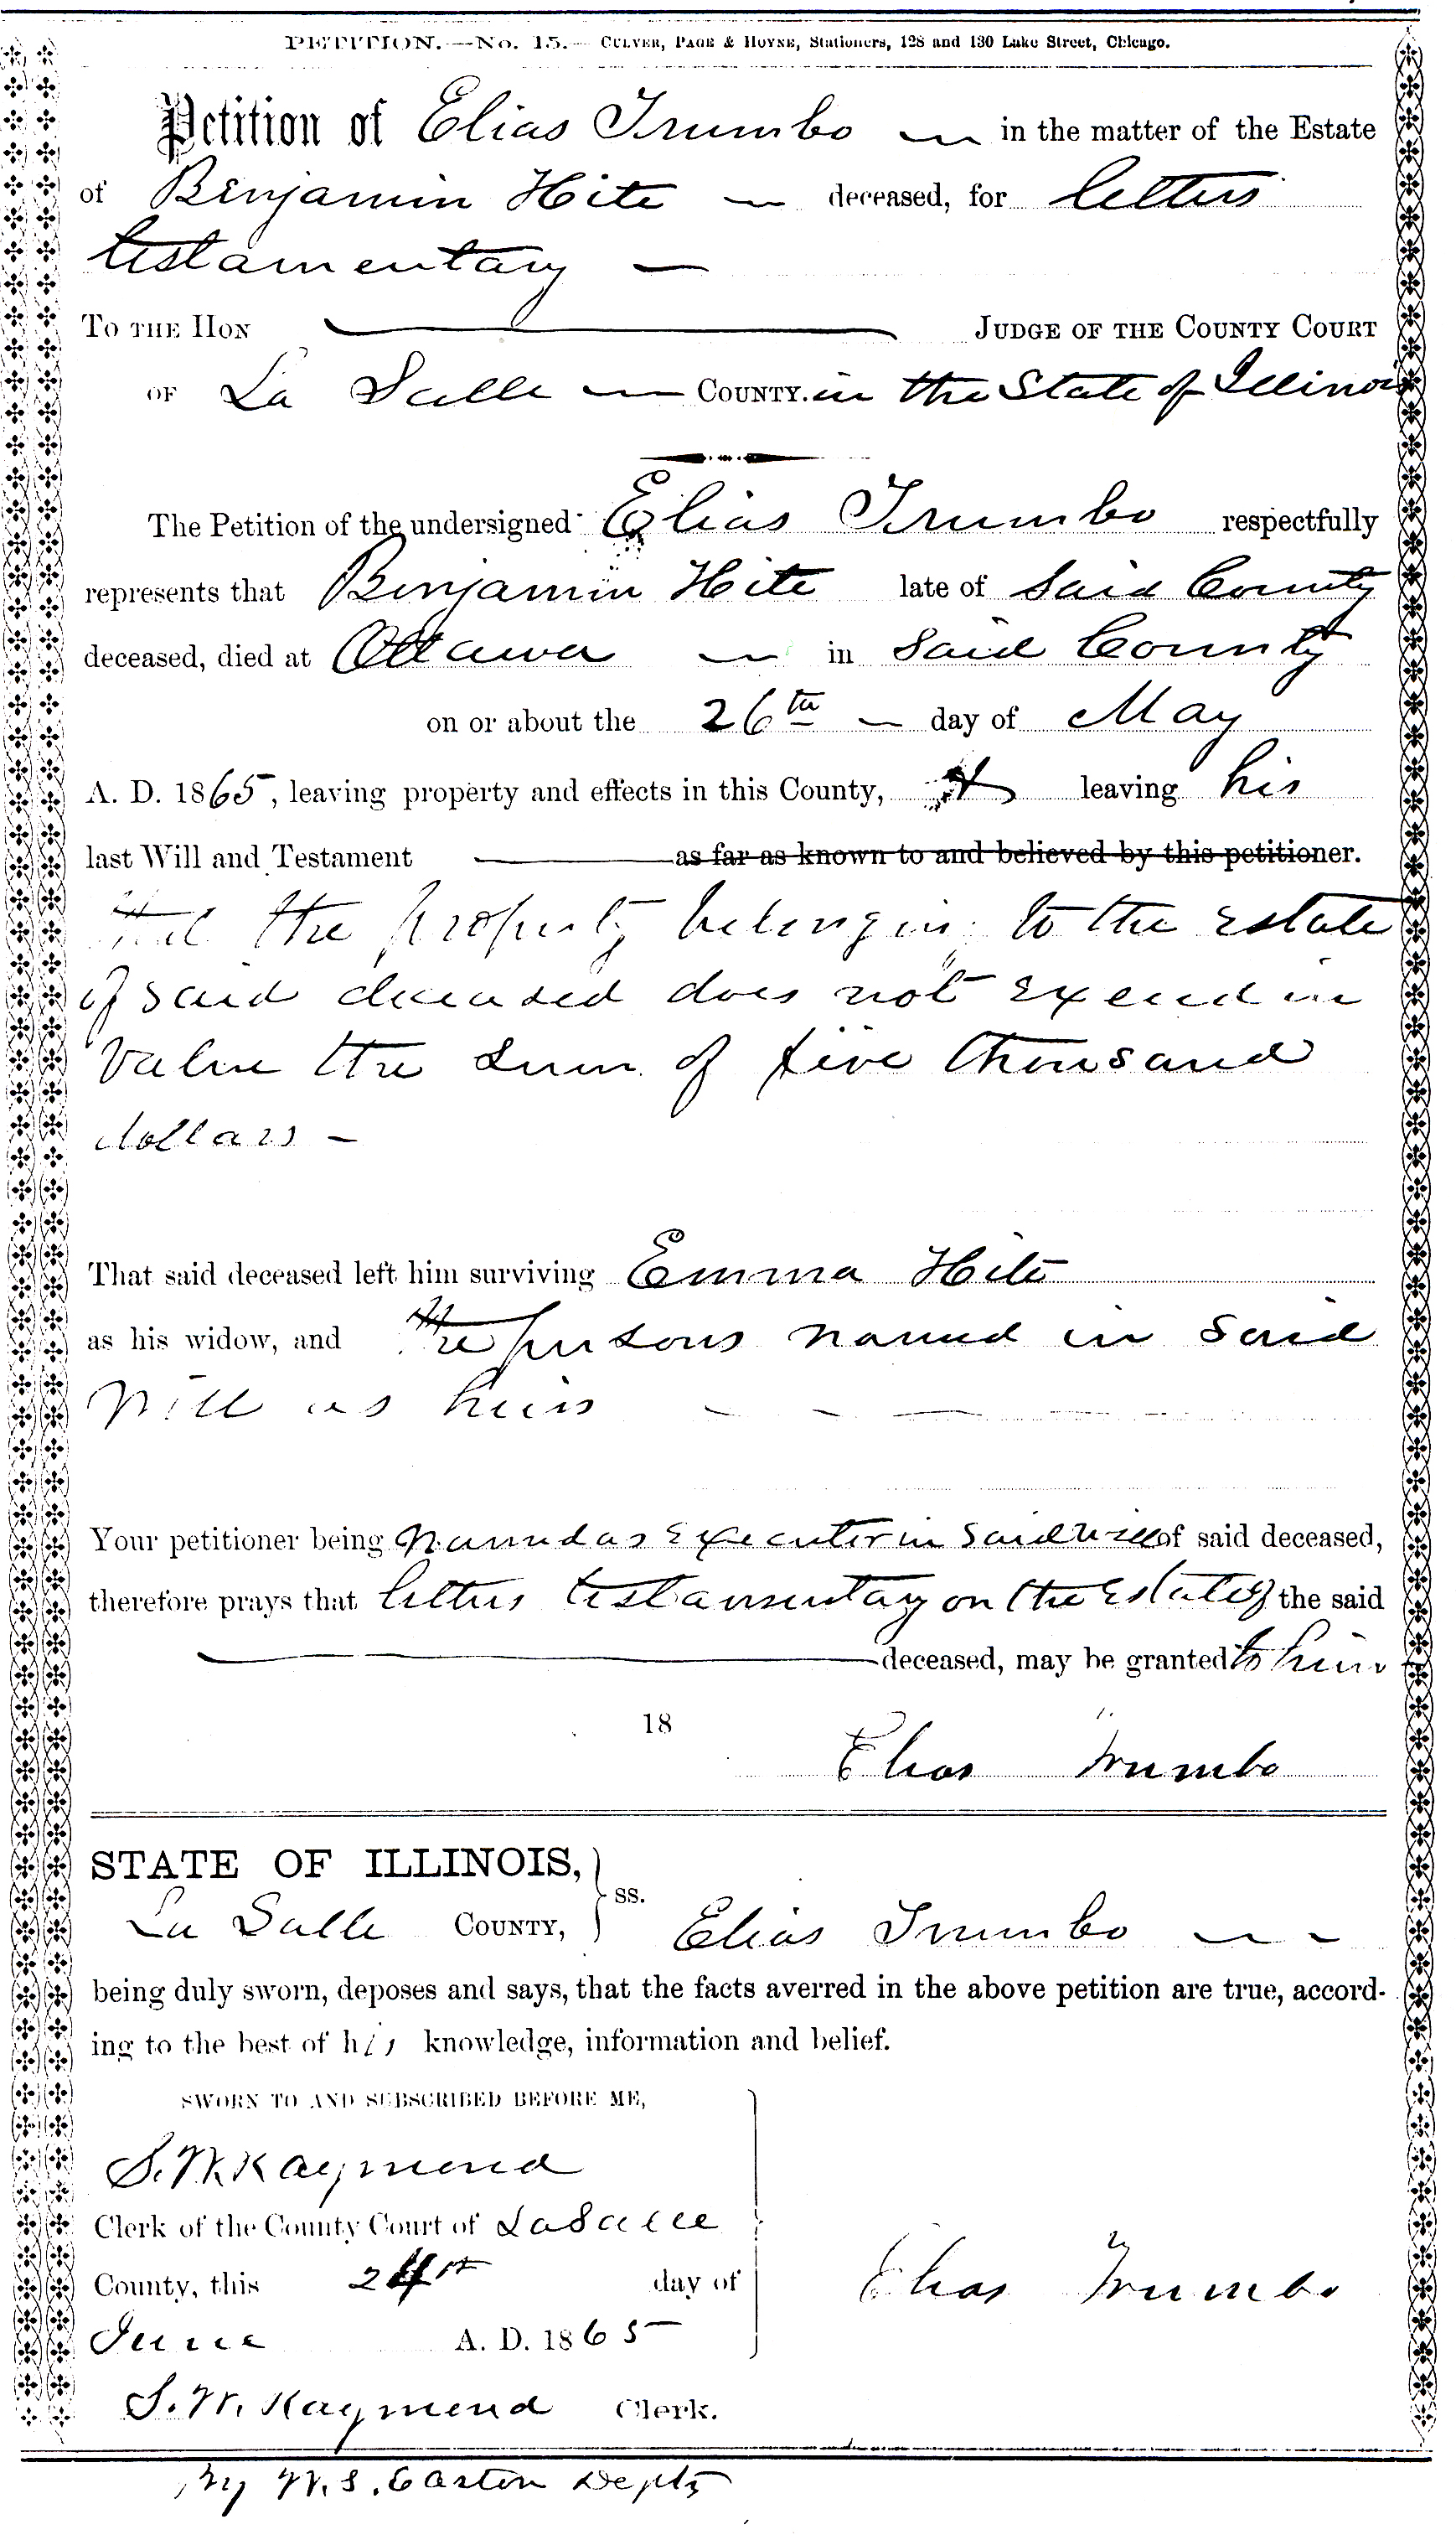 PETITION.—No. 15.— CULVER, PAGE & HOYNE, Stationers, 128 and 130 Lake Street, Chicago.
Petition of Elias Trumbo — in the matter of the Estate
of Benjamin Hite — deceased, for letters
testamentary —
TO THE HON JUDGE OF THE COUNTY COURT
OF La Salle — COUNTY. in the State of Illinois
The Petition of the undersigned Elias Trumbo respectfully
represents that Benjamin Hite late of said County
deceased, died at Ottawa — in said County
on or about the 26th — day of May
A. D. 1865, leaving property and effects in this County, & leaving his
last Will and Testament as far as known to and believed by this petitioner.
that the property belonging to the estate
of said deceased does not exceed in
value the sum of five thousand
dollars —
That said deceased left him surviving Emma Hite
as his widow, and the persons named in said
Will as heirs — — —
Your petitioner being named as Executer in said will of said deceased,
therefore prays that letters testamentary on the Estate of the said
deceased, may be granted to him
18
Elias Trumbo
STATE OF ILLINOIS,
La Salle COUNTY, } ss. Elias Trumbo — —
being duly sworn, deposes and says, that the facts averred in the above petition are true, accord-
ing to the best of his knowledge, information and belief.
SWORN TO AND SUBSCRIBED BEFORE ME,
S. W. Raymond
Clerk of the County Court of LaSalle
County, this day of
Elias Trumbo
June A. D. 1865
S. W. Raymond Clerk.
By W. S. Easton Depty